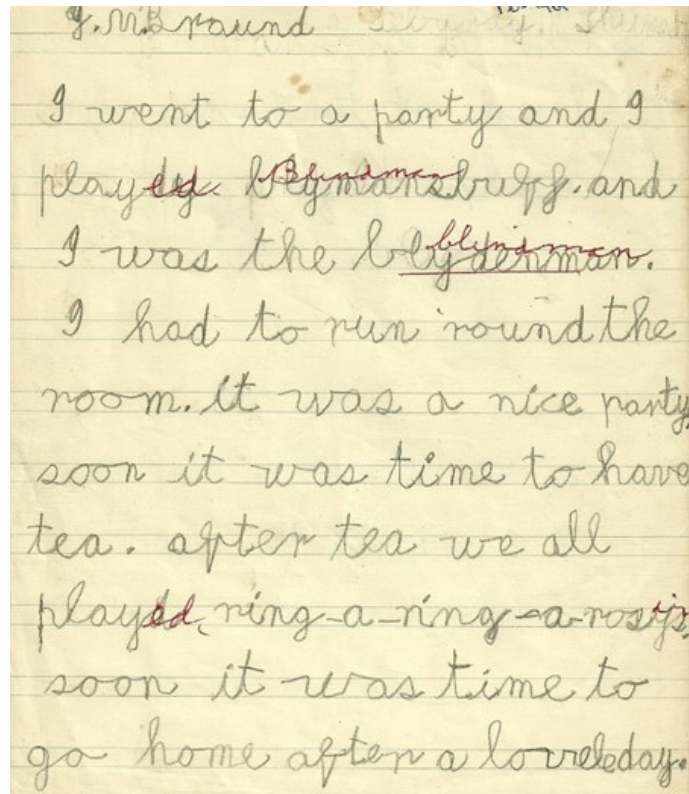 J.M.Bround
I went to a party and I
played. Blindman
mansbuff. and
blindman
I was the blydenman.
I had to run round the
room. it was a nice party
soon it was time to have
tea. after tea we all
played, ring-a-ring-a-rosys.
soon it was time to
go home after a loveleday.